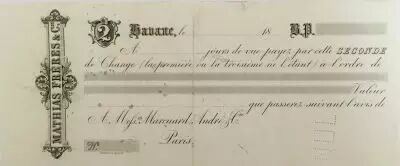 MATHIAS FRÈRES & Cie.
2 Havane, le 18 B.P.
A jours de vue payez par cette SECONDE
de Change (la première ou la troisième ne l'étant) à l'ordre de
Valeur
que passerez suivant l'avis de
A Mess. Marcuard, André & Cie
Paris.